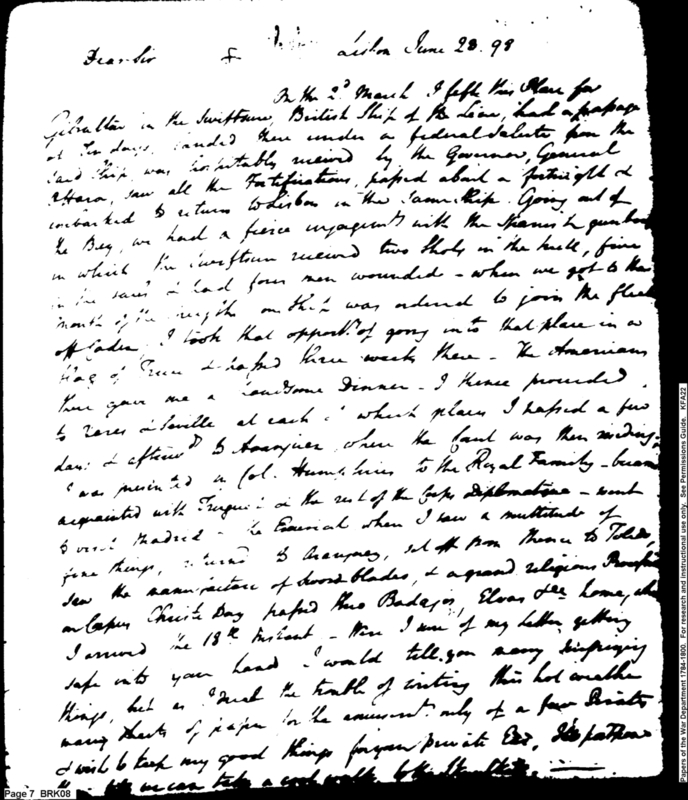 Dear Sir Lisbon June 28. 98
On the 2d March I left this Place for
Gibraltar in the Swiftsure, British Ship of the Line, had a passage
of Ten days, landed there under a federal Salute from the
said Ship, was hospitably received by the Governor, General
OHara, saw all the Fortifications, passed about a fortnight &
embarked to return to Lisbon in the same Ship. Going out of
the Bay, we had a fierce engagemt with the Spanish gun boats
in which the Swiftsure received two Shots in the hull, five
in the sails & had four men wounded - when we got to the
mouth of the Straights our Ship was ordered to join the fleet
off Cadiz. I took that opporty of going into that place in a
Flag of Truce & passed three weeks there - The Americans
there gave me a handsome Dinner - I thence proceeded
to Xeres & Seville at each of which places I passed a few
days & afterwd to Aranjuez, where the Court was then residing,
I was presented by Col. Humphries to the Royal Family - became
acquainted with & the rest of the Corps Diplomatique - went
to visit Madrid - the Escurial where I saw a multitude of
fine things, returned to Aranjuez, set off from thence to Toledo,
saw the manufacture of Sword blades, & a grand religious Procession
on Corpus Christi Day passed thro Badajos, Elvas &ca home, where
I arrived the 18th Instant - Were I sure of my Letter getting
safe into your hand I would tell you many surprizing
things, but as I dread the trouble of writing this hot weather
many sheets of paper for the amusemt only of a few Pirates
& wish to keep my good things for your private Ear, I'll postpone
we can take a cool walk to the
Page 7 BRK08
Papers of the War Department 1784-1800. For research and instructional use only. See Permissions Guide. KFA22